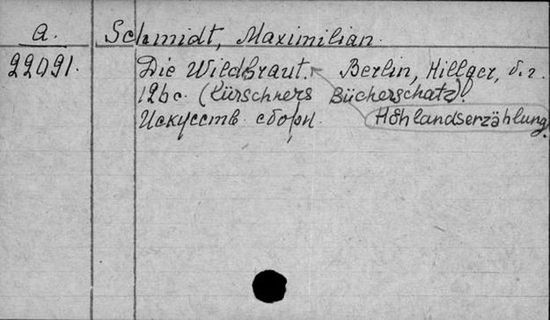 a. Schmidt, Maximilian.
22091. Die Wildbraut. Berlin, Hillger, б.г.
126 с. (Kürschners Bücherschatz).
Искусств. сборн. Hohlandserzählung.